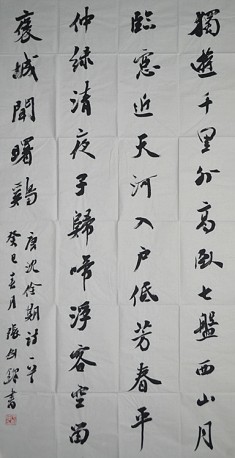 獨遊千里外高臥七盤西山月
臨窓近天河入户低芳春平
仲緑清夜子歸啼浮客空留
褒城聞曙鷄
唐沈佺期詩一首
癸巳 月 張 書